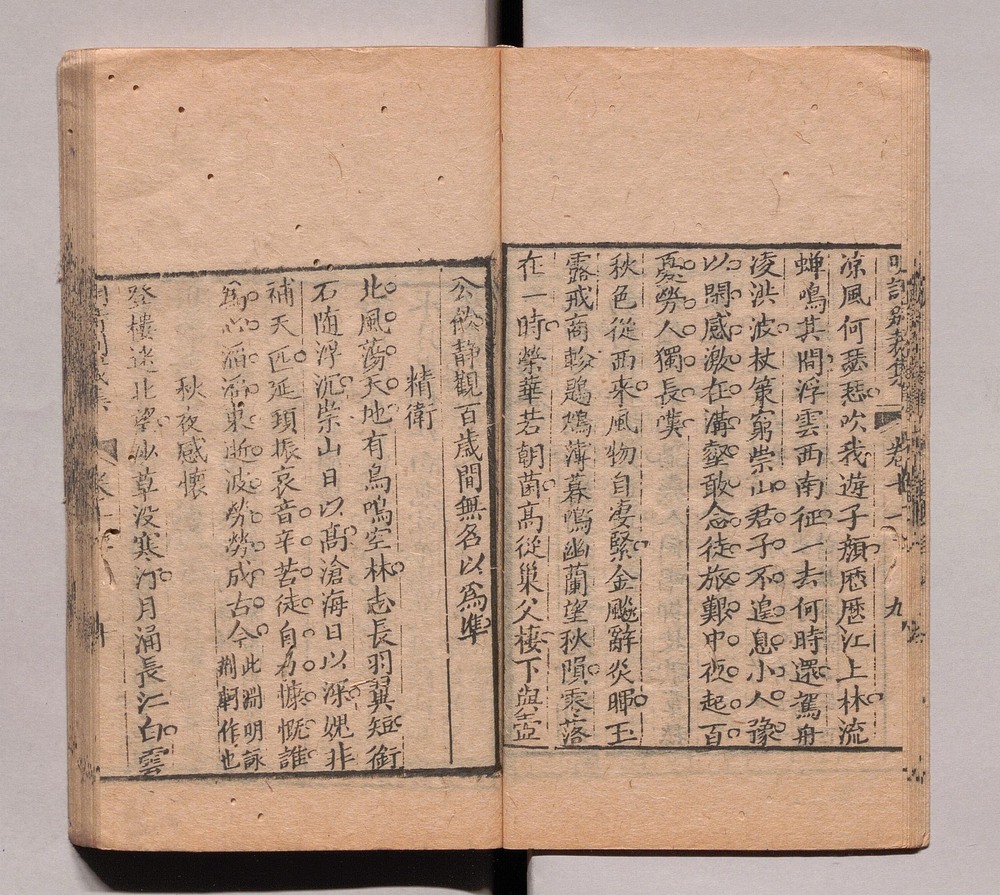 凉風何瑟瑟吹我遊子顏歷歷江上林流
蟬鳴其間浮雲西南征一去何時還駕舟
凌洪波杖策窮崇山君子不遑息小人豫
以閑感激在溝壑敢念徒旅艱中夜起百
憂勞人獨長嘆
秋色從西来風物自凄緊金飈辭炎暉玉
露戒商軫鶗鴂薄暮鳴幽蘭望秋隕零落
在一時榮華若朝菌高從巢父棲下與壺
卷十一
九
公飲静觀百歲間無名以為準
精衛
北風蕩天地有鳥鳴空林志長羽翼短銜
石隨浮沉崇山日以高滄海日以深媿非
補天匹延頸振哀音辛苦徒自力慷慨誰
為心滔滔東逝波勞勞成古今
此淵明詠
荆軻作也
秋夜感懷
登樓迷北望沙草没寒汀月涌長江白雲